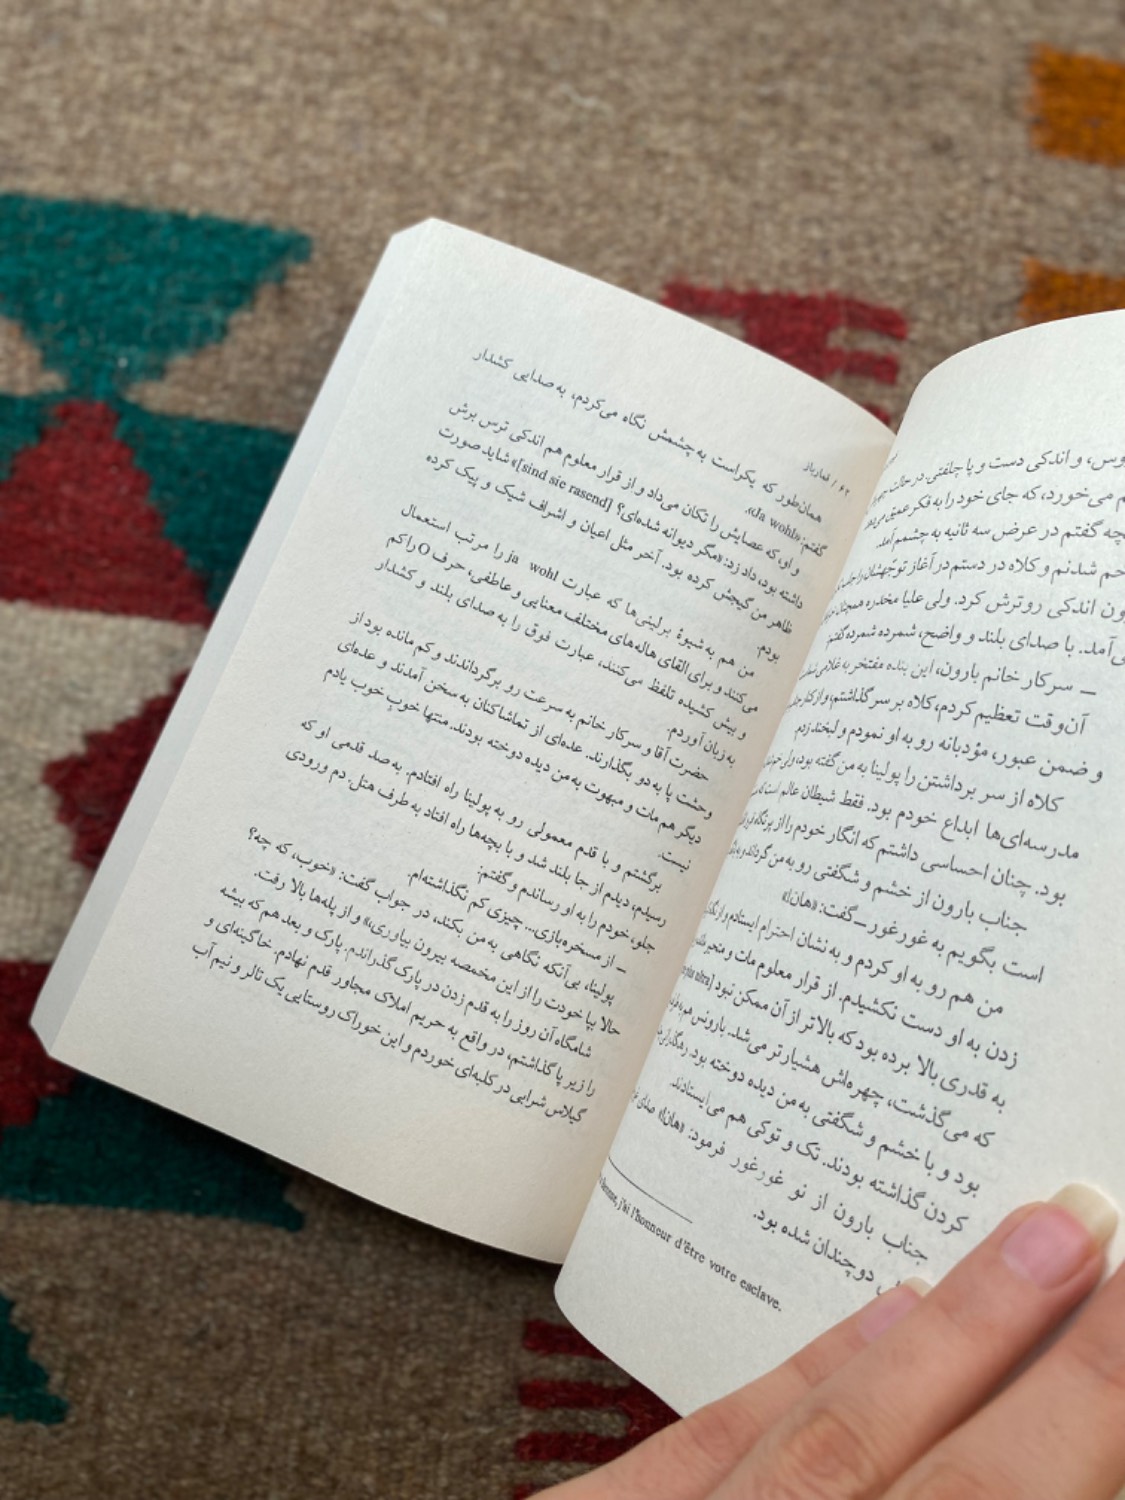 و اندکی دست و پا چلفتی. در حالت
می‌خورد، که جای خود را به فکر عمیق
گفتم در عرض سه ثانیه به چشمم آمد.
خم شدنم و کلاه در دستم در آغاز توجّهشان را
اندکی روترش کرد. ولی علیا مخدره همچنان
آمد. با صدای بلند و واضح، شمرده شمرده گفتم:
— سرکار خانم بارون، این بنده مفتخر به غلامی
آن‌وقت تعظیم کردم، کلاه بر سر گذاشتم، و از کنار
و ضمن عبور، مؤدبانه رو به او نمودم و لبخند زدم.
کلاه از سر برداشتن را پولینا به من گفته بود، ولی
مدرسه‌ای‌ها ابداع خودم بود. فقط شیطان عالم است که
بود. چنان احساسی داشتم که انگار خودم را از پرتگاه
جناب بارون از خشم و شگفتی رو به من گرداند و
است بگویم به غورغور ــ گفت: «هان!»
من هم رو به او کردم و به نشان احترام ایستادم و از
زدن به او دست نکشیدم. از قرار معلوم مات و متحیر
به قدری بالا برده بود که بالاتر از آن ممکن نبود ultra]
که می‌گذشت، چهره‌اش هشیارتر می‌شد. بارونس هم
بود و با خشم و شگفتی به من دیده دوخته بود.
کردن گذاشته بودند. تک و توکی هم می‌ایستادند.
جناب بارون از نو غورغور فرمود: «هان!» صدای
دوچندان شده بود.
j'ai l'honneur d'être votre esclave.
۶۲ / قمارباز
همان‌طور که یکراست به چشمش نگاه می‌کردم، به صدایی کشدار
گفتم: «Ja wohl».
و او، که عصایش را تکان می‌داد و از قرار معلوم هم اندکی ترس برش
داشته بود، داد زد: «مگر دیوانه شده‌ای؟ [sind sie rasend]» شاید صورت
ظاهر من گیجش کرده بود. آخر مثل اعیان و اشراف شیک و پیک کرده
بودم.
من هم به شیوهٔ برلینی‌ها که عبارت ja wohl را مرتب استعمال
می‌کنند و برای القای هاله‌های مختلف معنایی و عاطفی، حرف O را کم
و بیش کشیده تلفظ می‌کنند، عبارت فوق را به صدای بلند و کشدار
به زبان آوردم.
حضرت آقا و سرکار خانم به سرعت رو برگرداندند و کم مانده بود از
وحشت پا به دو بگذارند. عده‌ای از تماشاکنان به سخن آمدند و عده‌ای
دیگر هم مات و مبهوت به من دیده دوخته بودند. منتها خوبِ خوب یادم
نیست.
برگشتم و با قدم معمولی رو به پولینا راه افتادم. به صد قدمی او که
رسیدم، دیدم از جا بلند شد و با بچه‌ها راه افتاد به طرف هتل. دم ورودی
جلو، خودم را به او رساندم و گفتم:
— از مسخره‌بازی... چیزی کم نگذاشته‌ام.
پولینا، بی‌آنکه نگاهی به من بکند، در جواب گفت: «خوب، که چه؟
حالا بیا خودت را از این مخمصه بیرون بیاوری،» و از پله‌ها بالا رفت.
شامگاه آن روز را به قدم زدن در پارک گذراندم. پارک و بعد هم که بیشه
را زیر پا گذاشتم، در واقع به حریم املاک مجاور قدم نهادم. خاگینه‌ای و
گیلاس شرابی در کلبه‌ای خوردم و این خوراک روستایی یک تالر و نیم آب